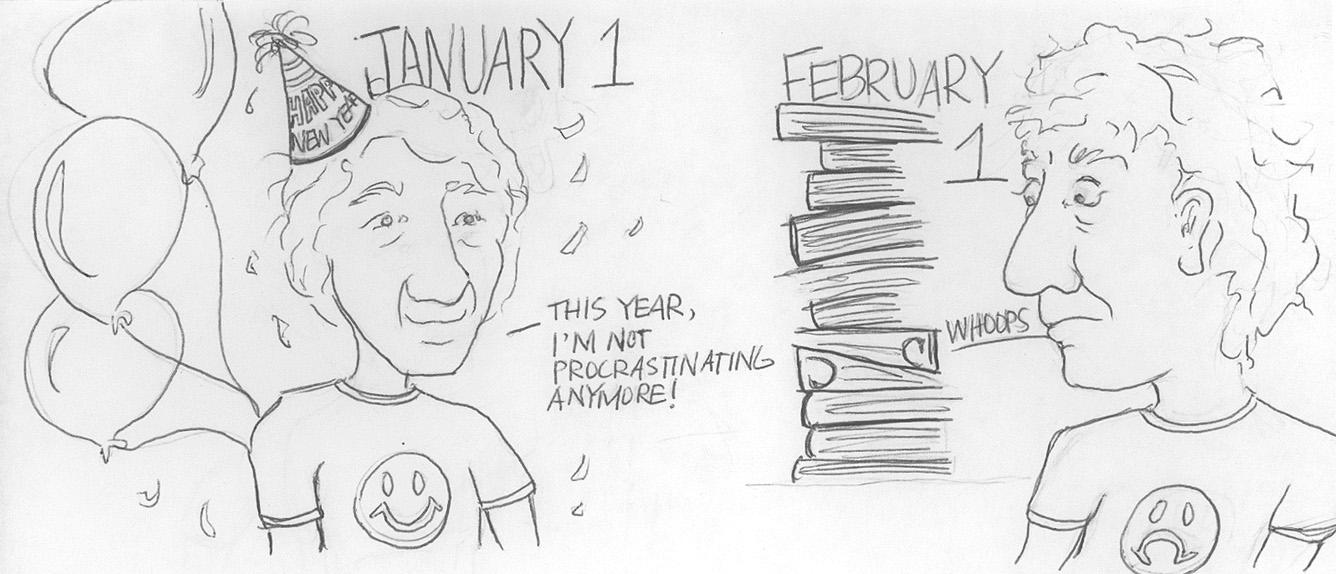 JANUARY 1
HAPPY
NEW YEAR
THIS YEAR,
I'M NOT
PROCRASTINATING
ANYMORE!
FEBRUARY
1
WHOOPS